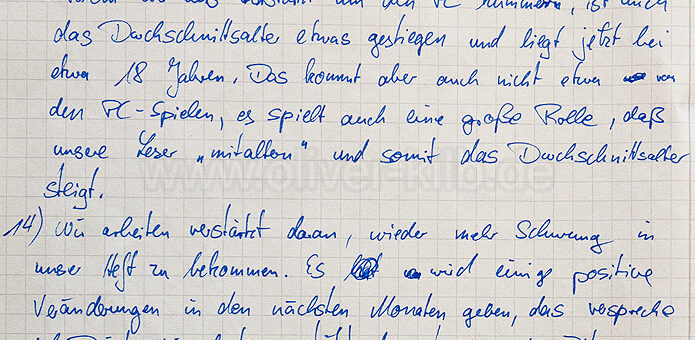 um den PC kümmern, ist auch
das Durchschnittsalter etwas gestiegen und liegt jetzt bei
etwa 18 Jahren. Das kommt aber auch nicht etwa von
den PC-Spielen, es spielt auch eine große Rolle, daß
unsere Leser „mitaltern" und somit das Durchschnittsalter
steigt.
14) Wir arbeiten verstärkt daran, wieder mehr Schwung in
unser Heft zu bekommen. Es wird einige positive
Veränderungen in den nächsten Monaten geben, das verspreche